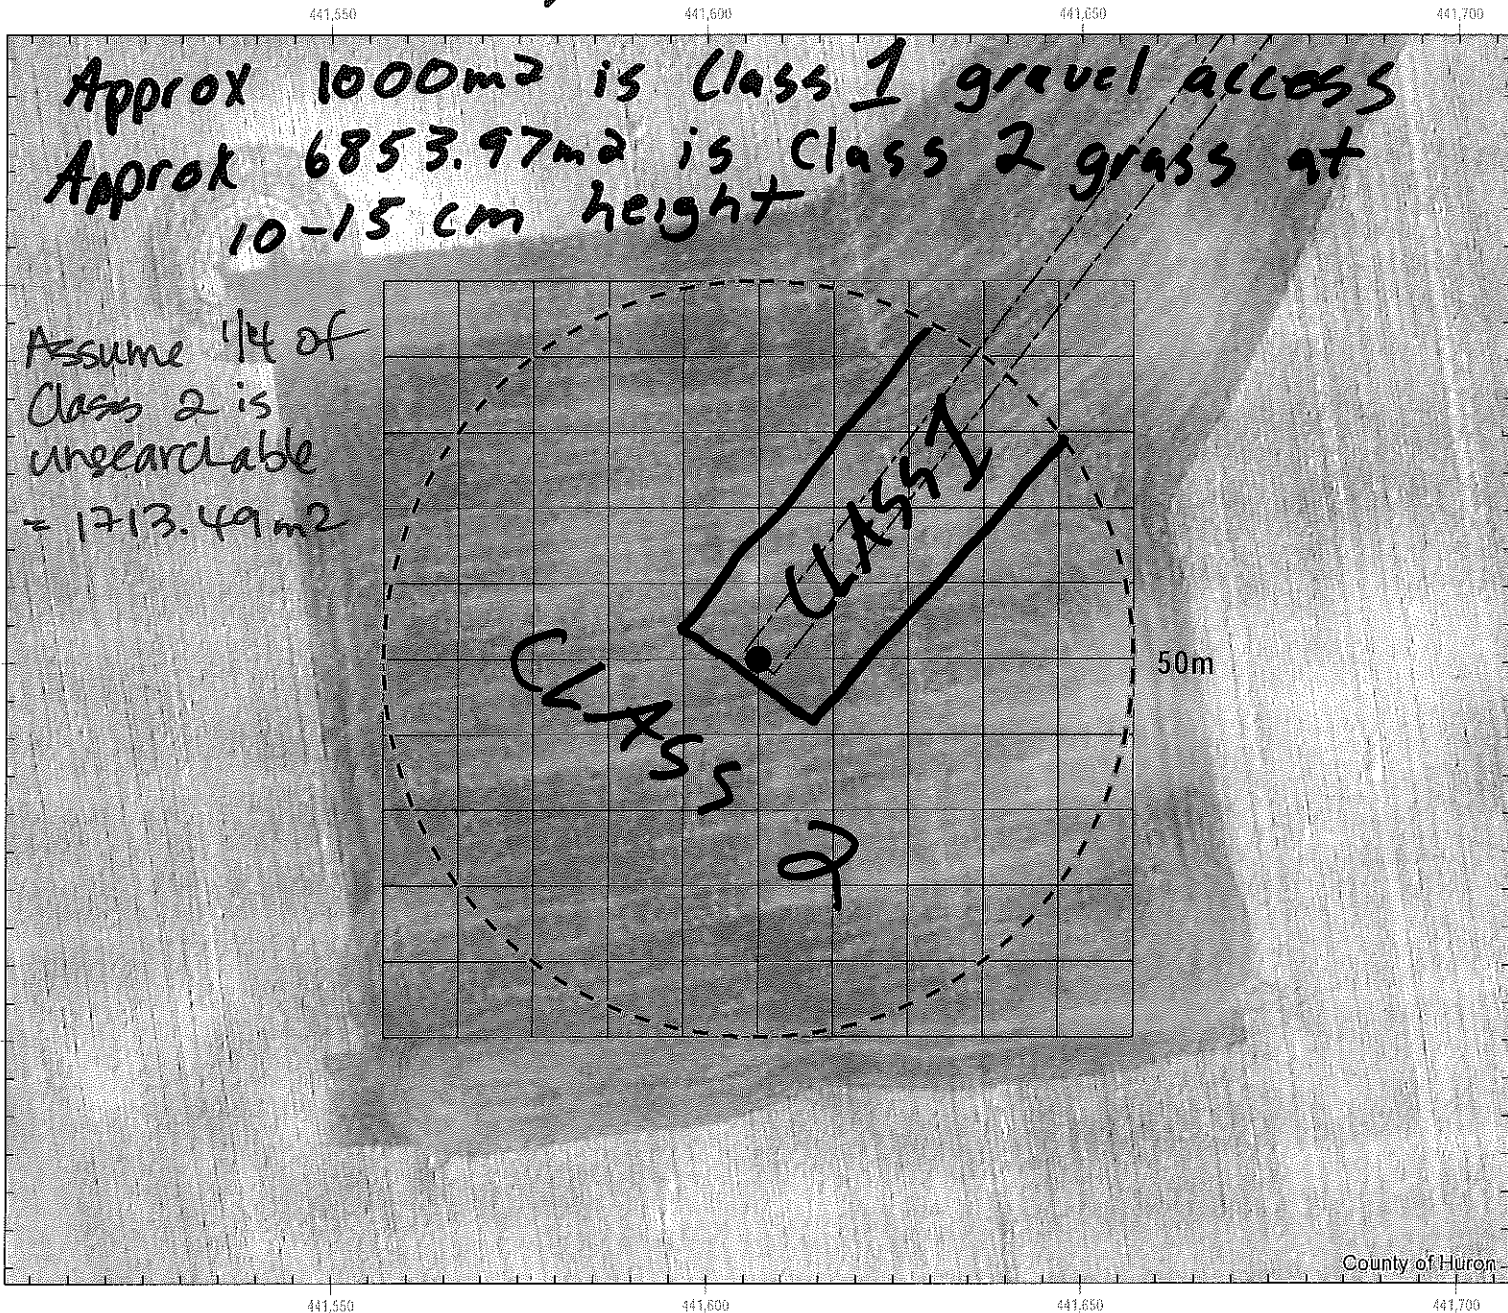 441,550 441,600 441,650 441,700
Approx 1000m2 is Class 1 gravel access
Approx 6853.97m2 is Class 2 grass at
10-15 cm height
Assume 1/4 of
Class 2 is
unsearchable
= 1713.49m2
CLASS 1
50m
CLASS 2
County of Huron
441,550 441,600 441,650 441,700